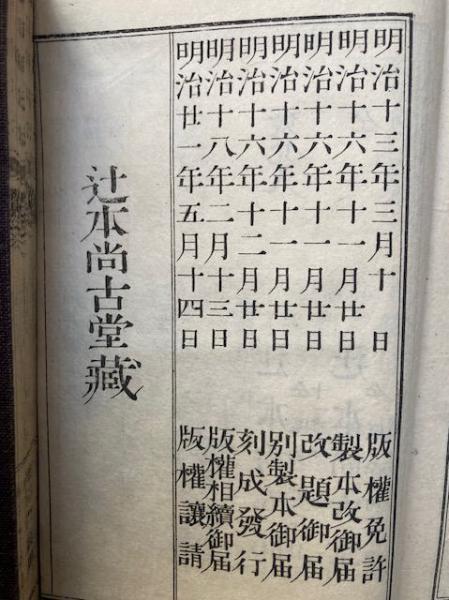 明治十三年三月十日 版權免許
明治十六年十一月廿日 製本改御届
明治十六年十一月廿日 改題御届
明治十六年十一月廿日 別製本御届
明治十六年十二月廿日 刻成發行
明治十八年二月十三日 版權相續御届
明治廿一年五月十四日 版權讓請
辻本尚古堂藏